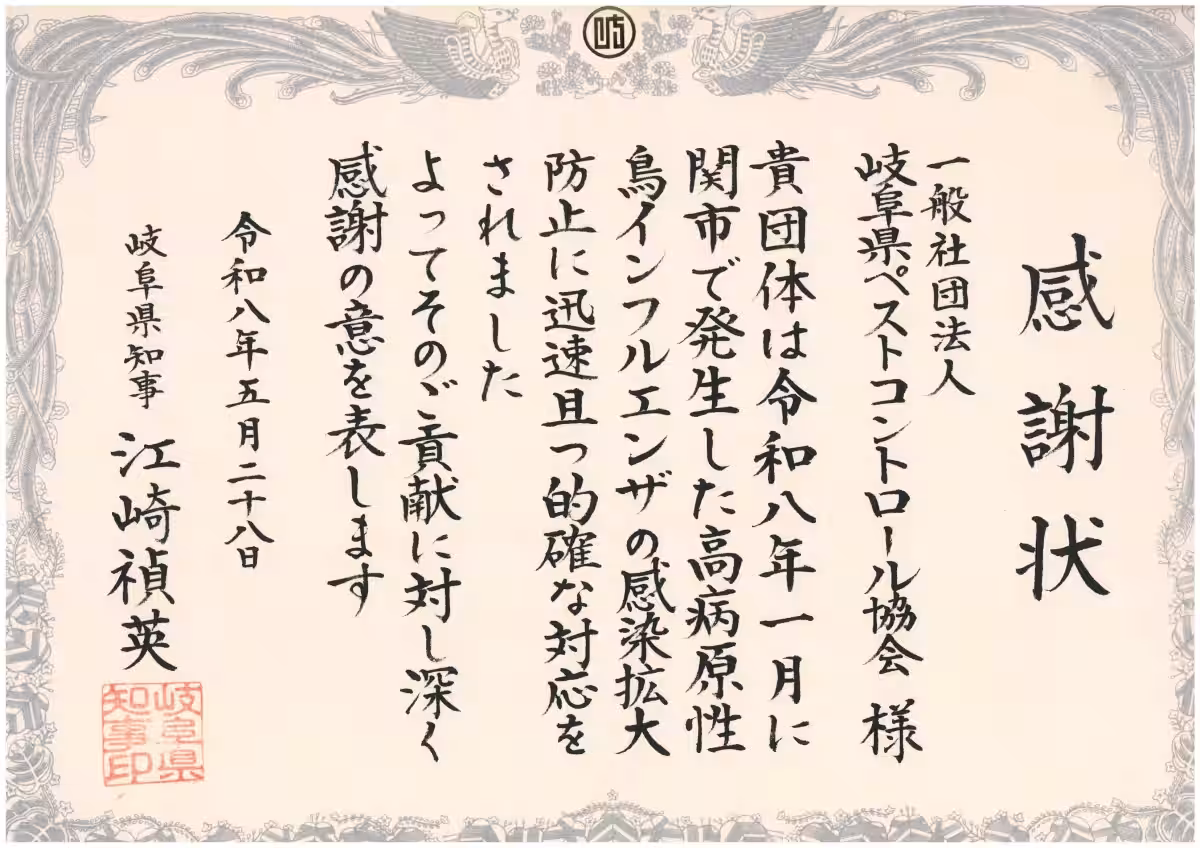 岐
感謝状
一般社団法人
岐阜県ペストコントロール協会 様
貴団体は令和八年一月に
関市で発生した高病原性
鳥インフルエンザの感染拡大
防止に迅速且つ的確な対応を
されました
よってそのご貢献に対し深く
感謝の意を表します
令和八年五月二十八日
岐阜県知事 江崎禎英
岐阜県
知事印